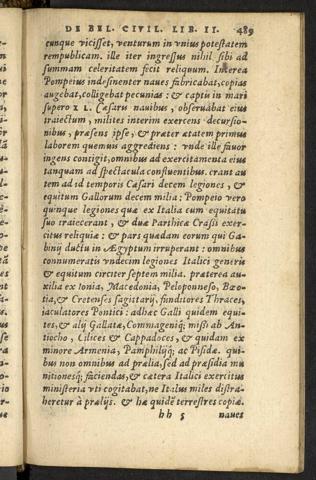 DE BEL. CIVIL. LIB. II. 489
cunque vicisset, venturum in vnius potestatem
rempublicam. ille iter ingressus nihil sibi ad
summam celeritatem fecit reliquum. Interea
Pompeius indesinenter naues fabricabat, copias
augebat, colligebat pecunias: & captu in mari
supero XL. Cæsaris nauibus, obseruabat eius
traiectum, milites interim exercens decursio-
nibus, præsens ipse, & præter ætatem primus
laborem quemuis aggrediens: vnde ille fauor
ingens contigit, omnibus ad exercitamenta eius
tanquam ad spectacula confluentibus. erant au
tem ad id temporis Cæsari decem legiones, &
equitum Gallorum decem milia: Pompeio vero
quinque legiones quæ ex Italia cum equitatu
suo traiecerant, & duæ Parthicæ Crassi exer-
citus reliquiæ: & pars quædam eorum qui Ga-
binij ductu in Ægyptum irruperant: omnibus
connumeratis vndecim legiones Italici generis
& equitum circiter septem milia. præterea au-
xilia ex Ionia, Macedonia, Peloponneso, Bœo-
tia, & Cretenses sagittarij, funditores Thraces,
iaculatores Pontici: adhæc Galli quidem equi-
tes, & alij Gallatæ, Commageniq́; missi ab An-
tiocho, Cilices & Cappadoces, & quidam ex
minore Armenia, Pamphilijq́; ac Pisidæ. qui-
bus non omnibus ad prælia, sed ad præsidia mu
nitionesq́; faciendas, & cætera Italici exercitus
ministeria vti cogitabat, ne Italus miles distra-
heretur à prælijs. & hæ quidẽ terrestres copiæ.
hh 5 naues